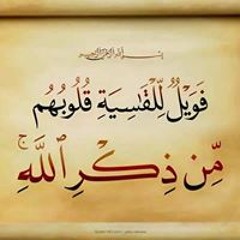 بسم الله الرحمن الرحيم
فَوَيْلٌ لِّلْقَاسِيَةِ قُلُوبُهُم
مِّن ذِكْرِ ٱللَّهِ ۚ